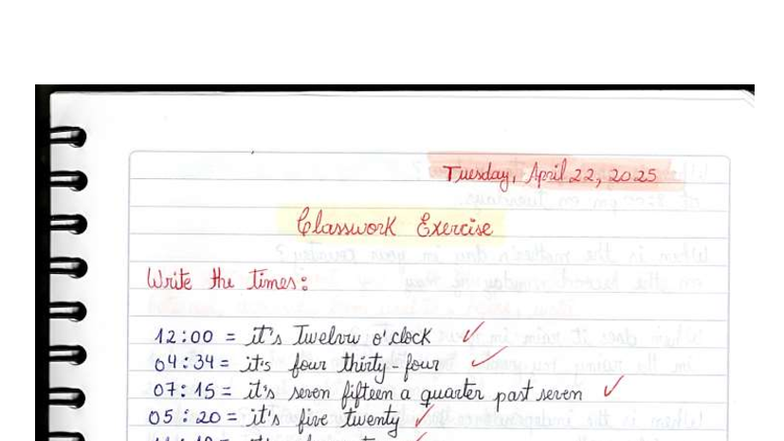 Tuesday, April 22, 2025
Classwork Exercise
Write the times:
12:00 = it's Twelve o'clock
04:34 = it's four thirty-four
07:15 = it's seven fifteen a quarter past seven
05:20 = it's five twenty